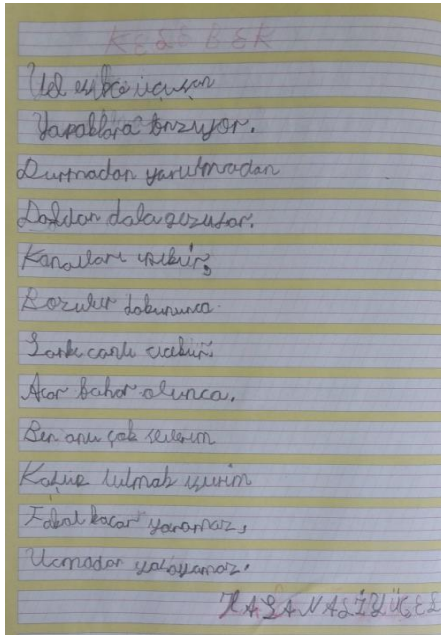 KELEBEK
Yel esince uçuşan
Yapraklara benziyor.
Durmadan yorulmadan
Daldan dala geziyor.
Kanatları
Bozulur dokununca.
Sanki canlı
Açar bahar olunca.
Ben onu çok severim
Koşup tutmak isterim
Fakat kaçar yaramaz,
Uçmadan yaşayamaz.
HASAN ALİ YÜCEL